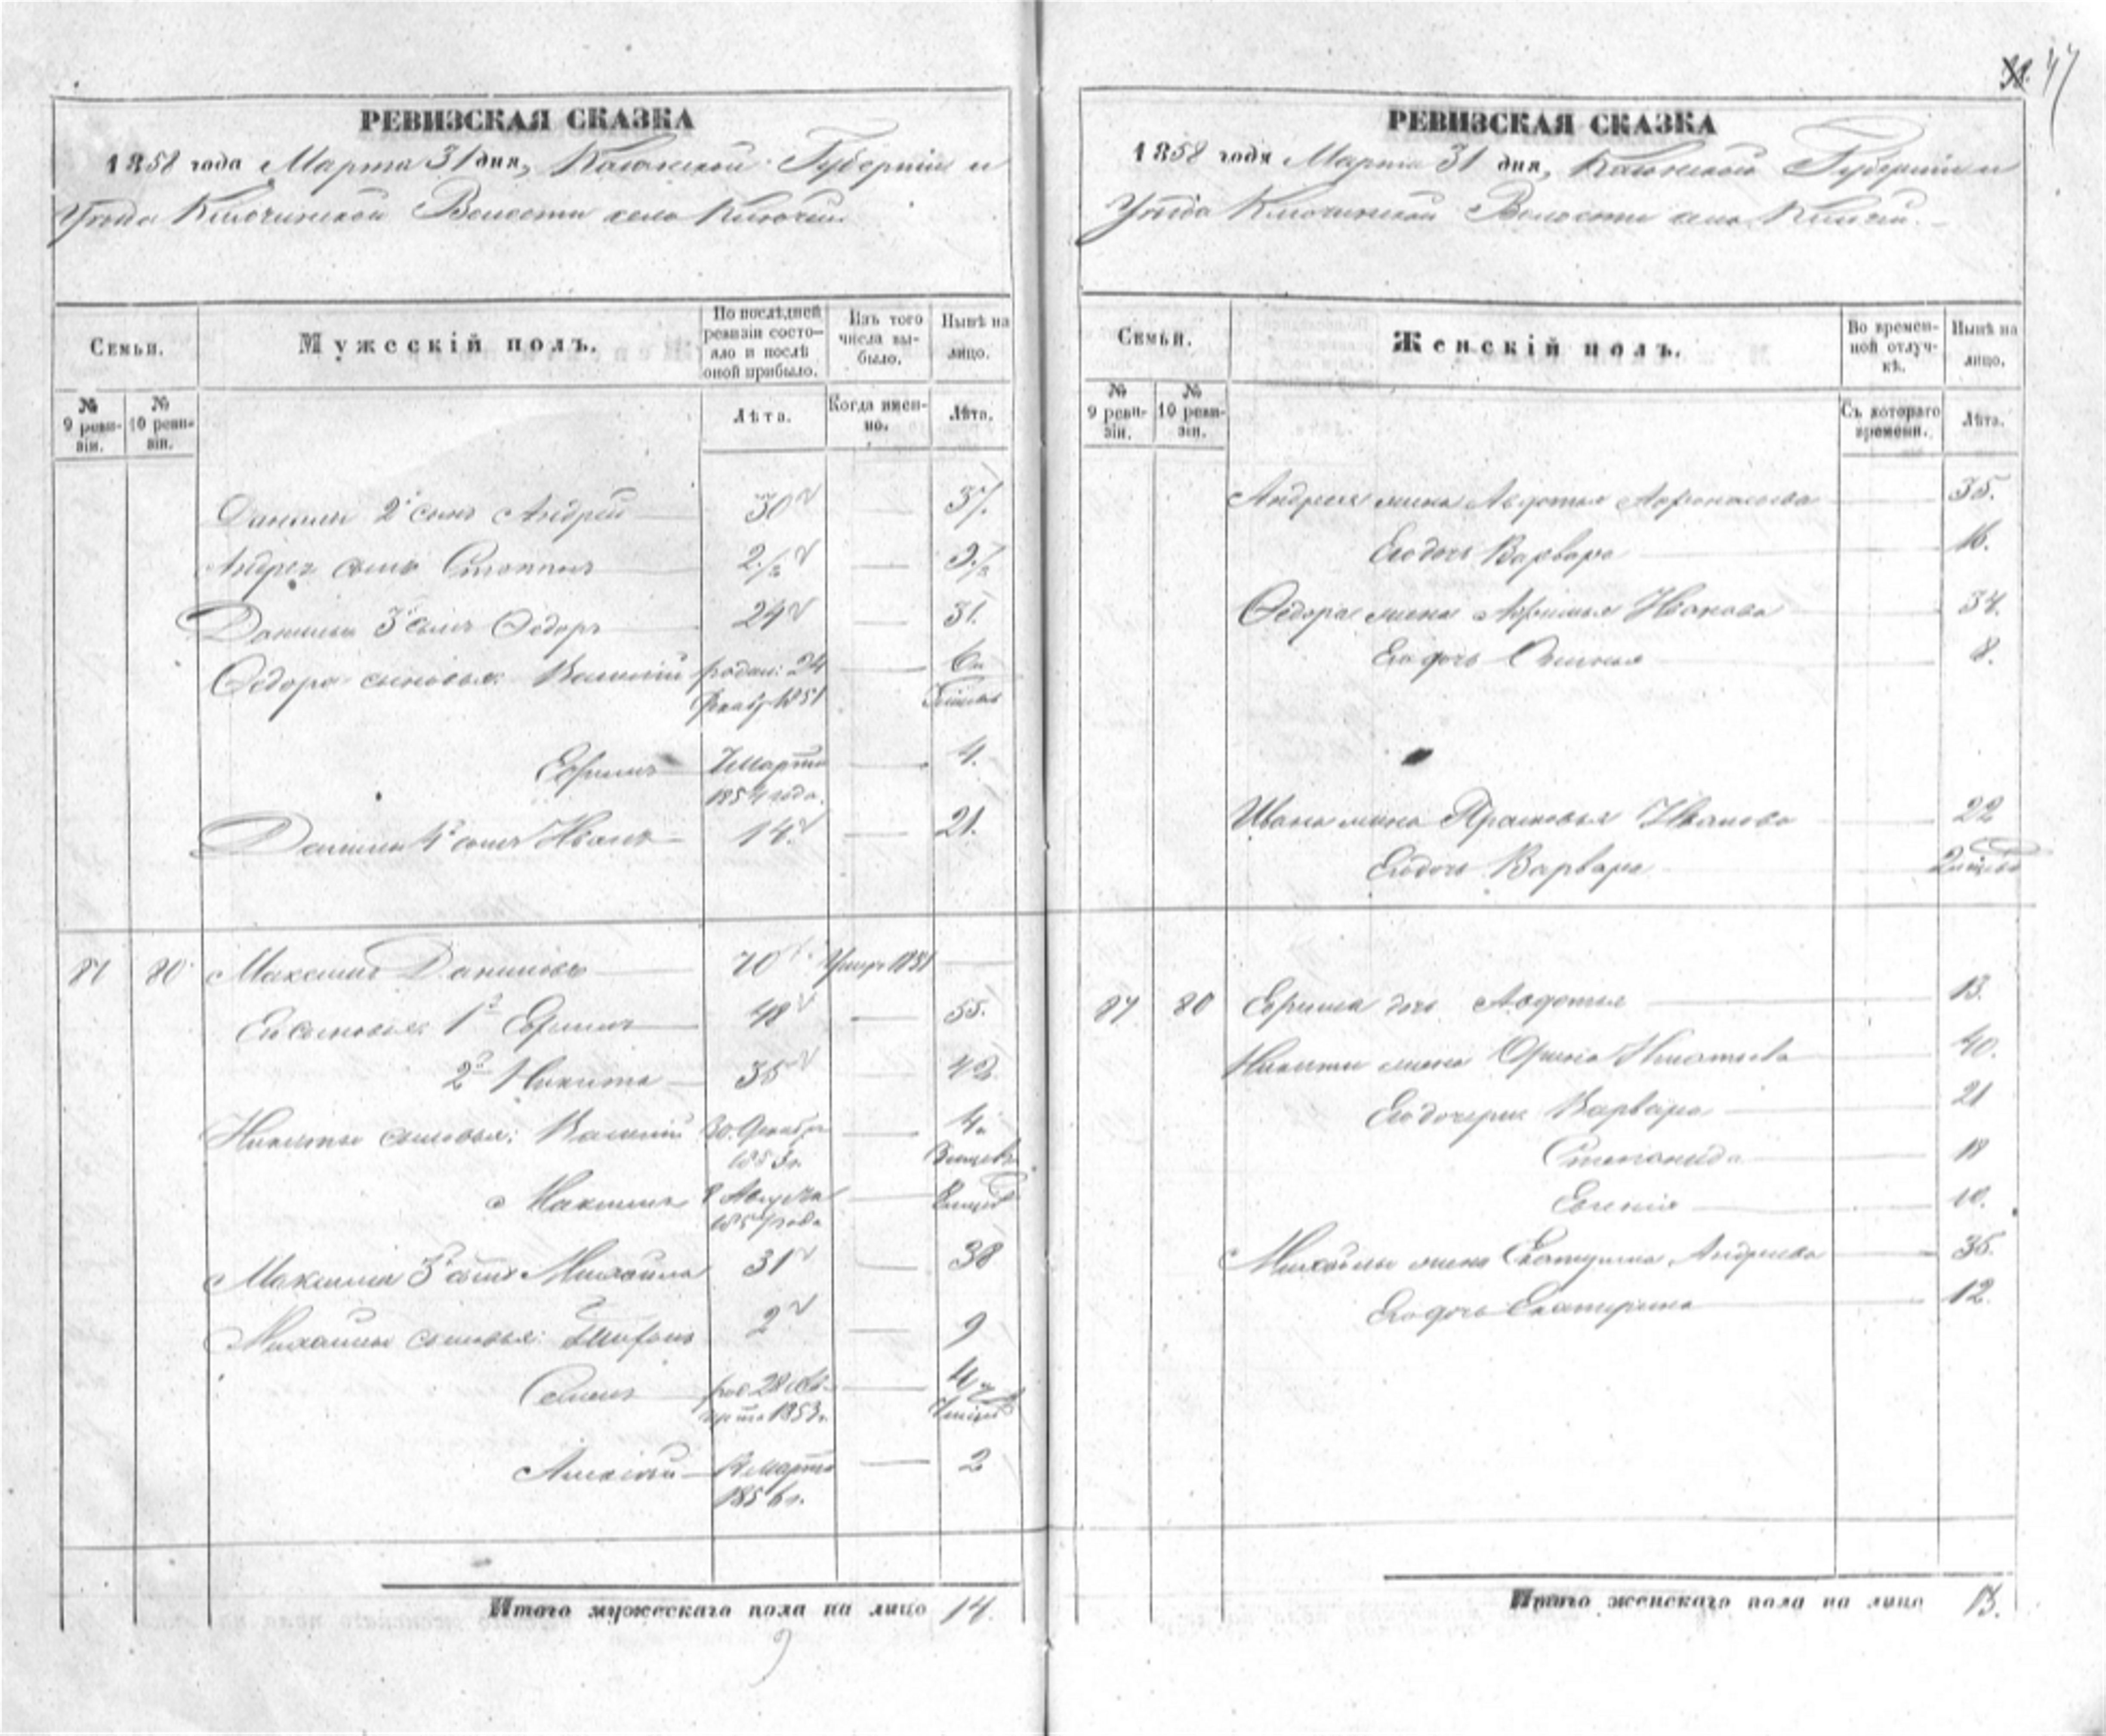 47
РЕВИЗСКАЯ СКАЗКА
1858 года Марта 31 дня, Казанской Губерніи и
Уѣзда Ключинской Волости село Ключи
Семьи.
Мужескій полъ.
По послѣдней ревизіи состояло и послѣ оной прибыло.
Изъ того числа выбыло.
Нынѣ на лицо.
№ 9 ревизіи.
№ 10 ревизіи.
Лѣта.
Когда именно.
Лѣта.
Данилы 2й сынъ Андрей 30 37.
Андрея сынъ Степанъ 2 1/2 9 1/2
Данилы 3й сынъ Ѳедоръ 24 31.
Ѳедора сыновья: Василій родил: 24 6
Декаб 1851
Ефимъ 7 Марта 4.
1854 года.
Данилы 4й сынъ Иванъ 14. 21.
81 80 Максимъ Даниловъ 70 Умеръ 1851
Его сыновья: 1й Ефимъ 48 55.
2й Никита 35 42
Никиты сыновья: Василій 30. Декабря 4
1853г. 3 месяц
Максимъ 8 Августа
года
Максима 3й сынъ Михайла 31 38
Михайлы сыновья: 2 9
Семенъ род. 28 4
1853г.
Алексѣй Марта 2
1856г.
Итого мужескаго пола на лицо 14.
РЕВИЗСКАЯ СКАЗКА
1858 года Марта 31 дня, Казанской Губерніи и
Уѣзда Ключинской Волости село Ключи.
Семьи.
Женскій полъ.
Во временной отлучкѣ.
Нынѣ на лицо.
№ 9 ревизіи.
№ 10 ревизіи.
Съ котораго времени.
Лѣта.
Андрея жена Авдотья Афонасьева 35.
Его дочь Варвара 16.
Ѳедора жена Афимья Иванова 34.
Его дочь 8.
Ивана жена Прасковья Иванова 22
Его дочь Варвара
81 80 Ефима дочь Авдотья 13.
Никиты жена Орина Игнатьева 40.
Его дочери: Варвара 21
Степанида 18
Евгенія 10.
Михайлы жена Екатерина Андреева 35.
Его дочь Екатерина 12.
Итого женскаго пола на лицо 13.